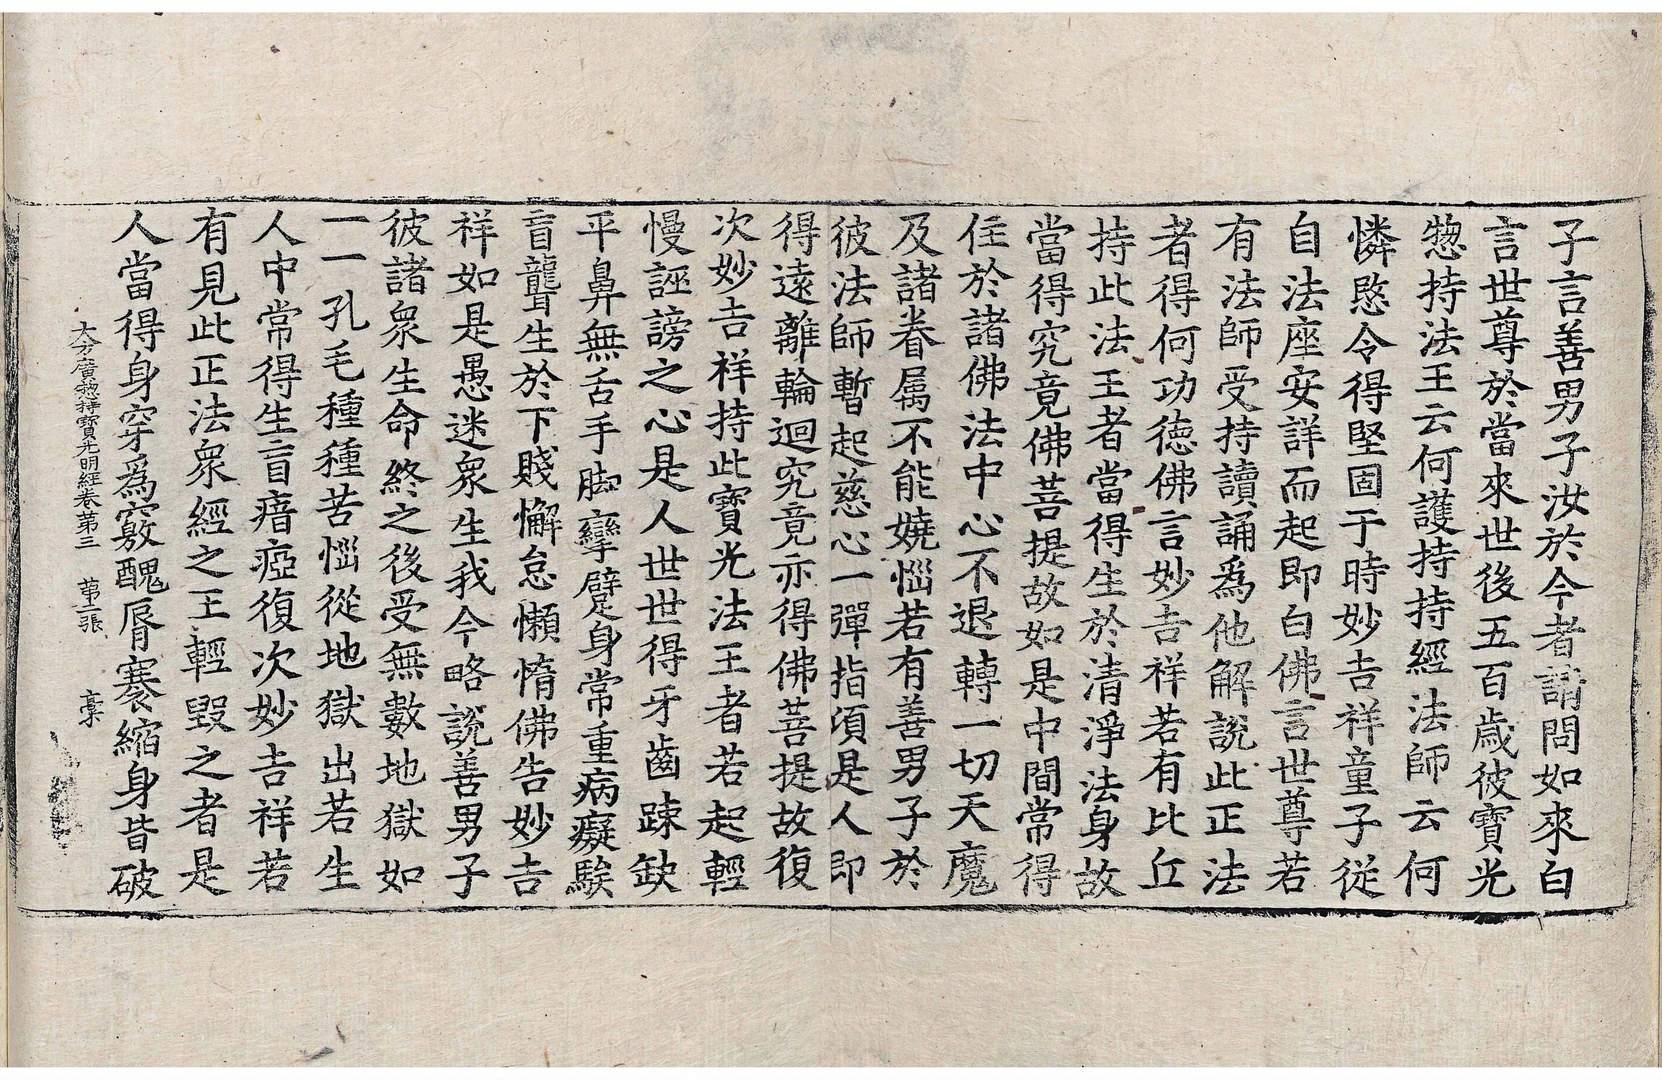 子言善男子汝於今者請問如來白
言世尊於當來世後五百歲彼寶光
揔持法王云何護持持經法師云何
憐愍令得堅固于時妙吉祥童子從
自法座安詳而起即白佛言世尊若
有法師受持讀誦爲他解說此正法
者得何功德佛言妙吉祥若有比丘
持此法王者當得生於清淨法身故
當得究竟佛菩提故如是中間常得
住於諸佛法中心不退轉一切天魔
及諸眷属不能嬈惱若有善男子於
彼法師暫起慈心一彈指頃是人即
得遠離輪迴究竟亦得佛菩提故復
次妙吉祥持此寶光法王者若起輕
慢誣謗之心是人世世得牙齒踈缺
平鼻無舌手脚攣躄身常重病癡騃
盲聾生於下賤懈怠懶惰佛告妙吉
祥如是愚迷衆生我今略說善男子
彼諸衆生命終之後受無數地獄如
一一孔毛種種苦惱從地獄出若生
人中常得生盲瘖瘂復次妙吉祥若
有見此正法衆經之王輕毀之者是
人當得身穿爲竅醜脣褰縮身皆破
大方廣揔持寶光明經卷苐三　苐二張　槀